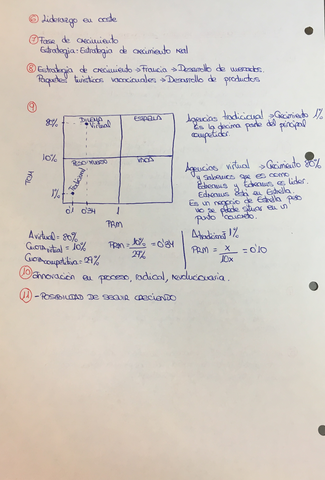 ⑥ Liderazgo en coste
⑦ Fase de crecimiento
Estrategia: Estrategia de crecimiento real
⑧ Estrategia de crecimiento → Francia → Desarrollo de mercados.
Paquetes turísticos vacacionales → Desarrollo de productos
⑨
TCM
80%
10%
1%
DILEMA
Virtual
ESTRELLA
PESO MUERTO
Tradicional
VACA
0,1 0'34 1
PRM
Agencias tradicional → Crecimiento 1%
Es la décima parte del principal
competidor.
Agencias virtual → Crecimiento 80%
y sabemos que es como
Edreams y Edreams es líder.
Edreams está en Estrella
Es un negocio de Estrella pero
no se puede situar en un
punto concreto.
A virtual = 80%
Cuota virtual = 10%
Cuota competitiva = 29%
PRM = 10% / 29% = 0'34
A tradicional 1%
PRM = x / 10x = 0'10
⑩ Innovación en proceso, radical, revolucionaria.
⑪ - POSIBILIDAD DE SEGUIR CRECIENDO